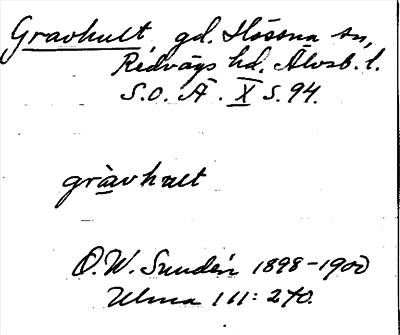 Gravhult, gd. Hössna sn,
Redvägs hd. Älvsb. l.
S.O. Ä. X S. 94.
gràvhult
O. W. Sundén 1898-1900
Ulma 111: 270.